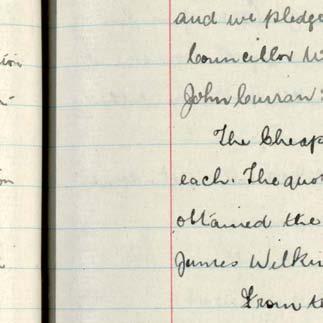 and we pledge
Councillor W
John Curran
The Cheap
each. The quo
obtained the
James Wilkin
From t